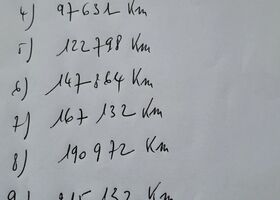 4) 97631 Km
5) 122798 Km
6) 147864 Km
7) 167 132 Km
8) 190 972 Km
9) 132 Km